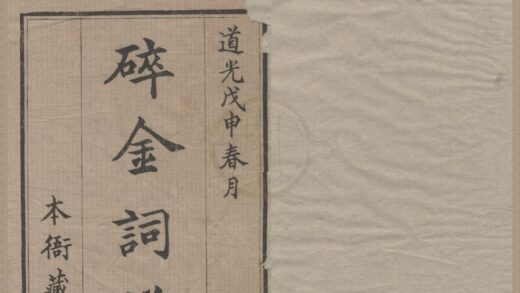 道光戊申春月
碎金詞
本衙藏